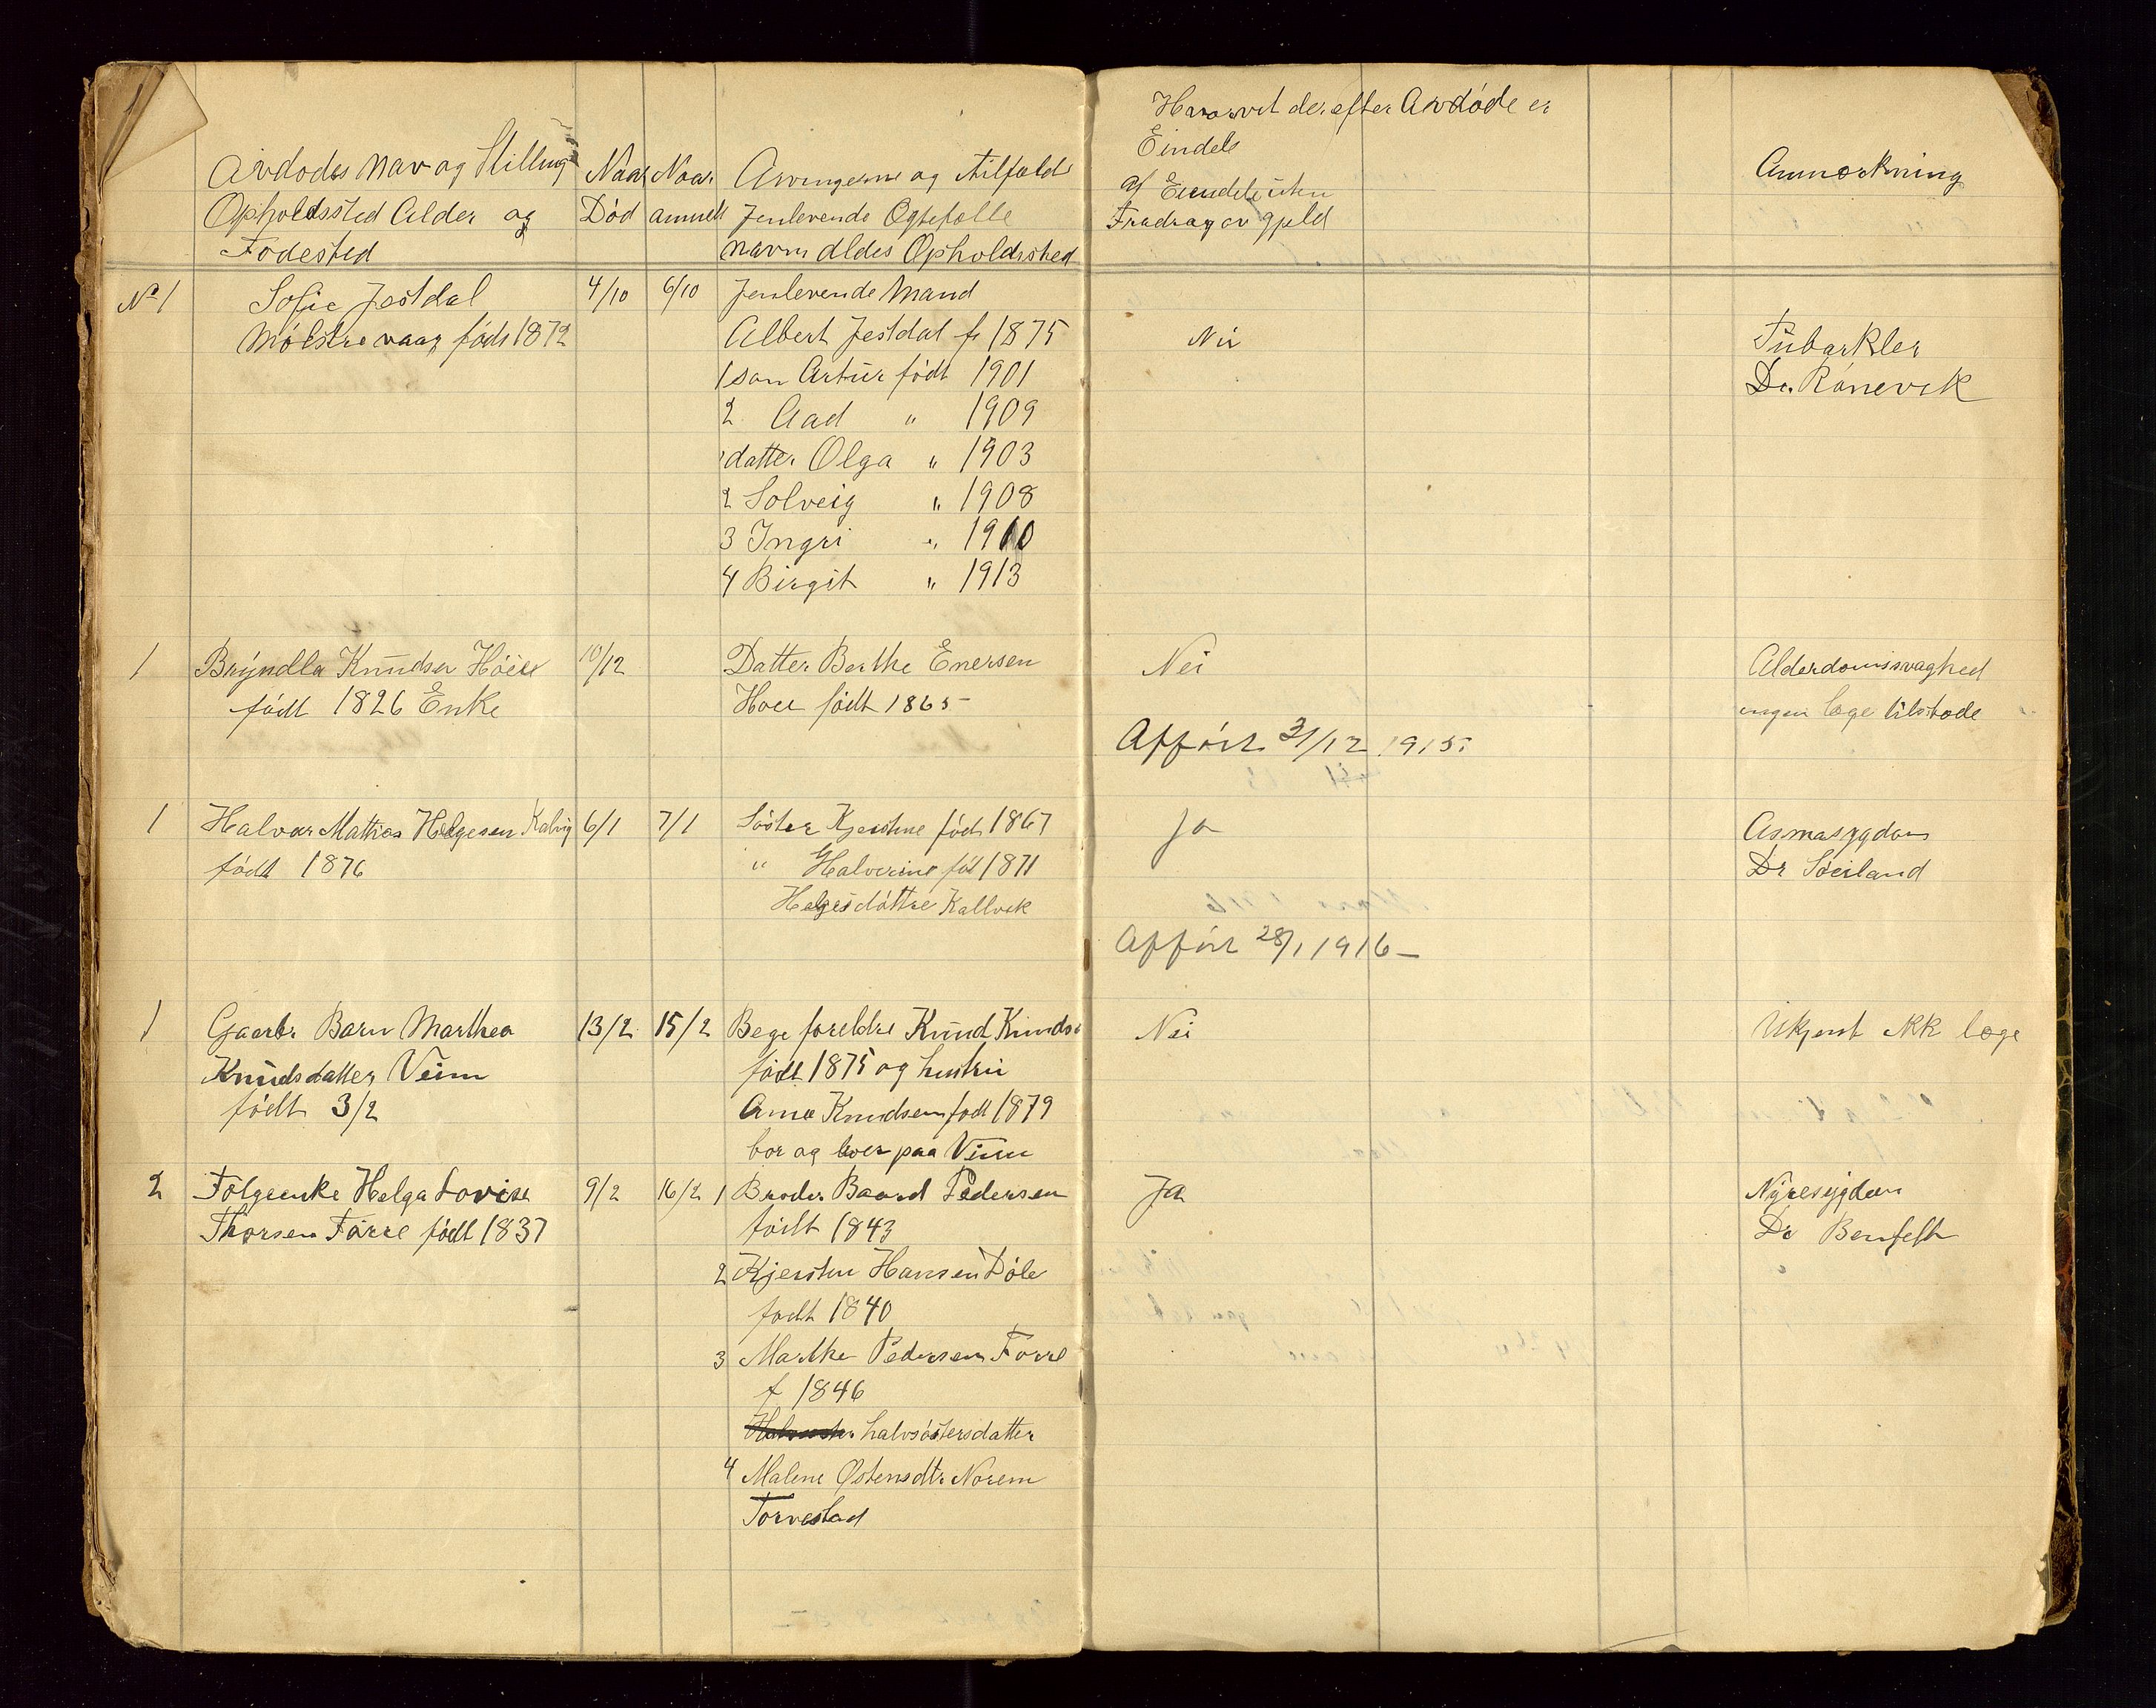 1
Avdødes Navn og Stilling
Opholdssted Alder og
Fødested
Naar
Død
Naar
anmeldt
Arvingerne og tilfælde
Jenlevende Ægtefælle
Navn Aldes Opholdssted
Hvorvit der efter Avdøde er
Eindels
af Eiendele uten
Fradrag av gjeld
Anmærkning
No 1 Sofie Jestdal 4/10 6/10 Jenlevende Mand
Mølstrevaag født 1872 Albert Jestdal f. 1875 Nei Tubarkler
1 søn Artur født 1901 Dr. Rønevik
2 Aad " 1909
1 datter Olga " 1903
2 Solveig " 1908
3 Ingri " 1910
4 Birgit " 1913
1 Bryndla Knudsen Høie 10/12 Datter Berthe Enersen Nei Alderdomssvaghed
født 1826 Enke Høie født 1865 ingen læge tilstæde
Afført 31/12 1915
1 Halvar Mathias Helgesen Kalvig 6/1 7/1 Søster Kjerstine født 1867 Ja Asmasygdom
født 1876 " Halverine født 1871 Dr Søiland
Helgesdøttre Kallvik
Afført 28/1 1916 –
1 Gaarbr Barn Marthea 13/2 15/2 Bege foreldre Knud Knuds Nei Ukjent ikk læge
Knudsdatter Veim født 1875 og hustru
født 3/2 Anna Knudsen født 1879
bor og lever paa Veim
2 Følgeenke Helga Lovise 9/2 16/2 1 Broder Baard Pedersen Ja Nyresygdom
Thorsen Førre født 1837 født 1843 Dr Benfeldt
2 Kjersten Hansen Døle
født 1840
3 Marthe Pedersen Førre
f 1846
halvsøstersdatter
4 Malene Østensdtr Norem
Torvestad